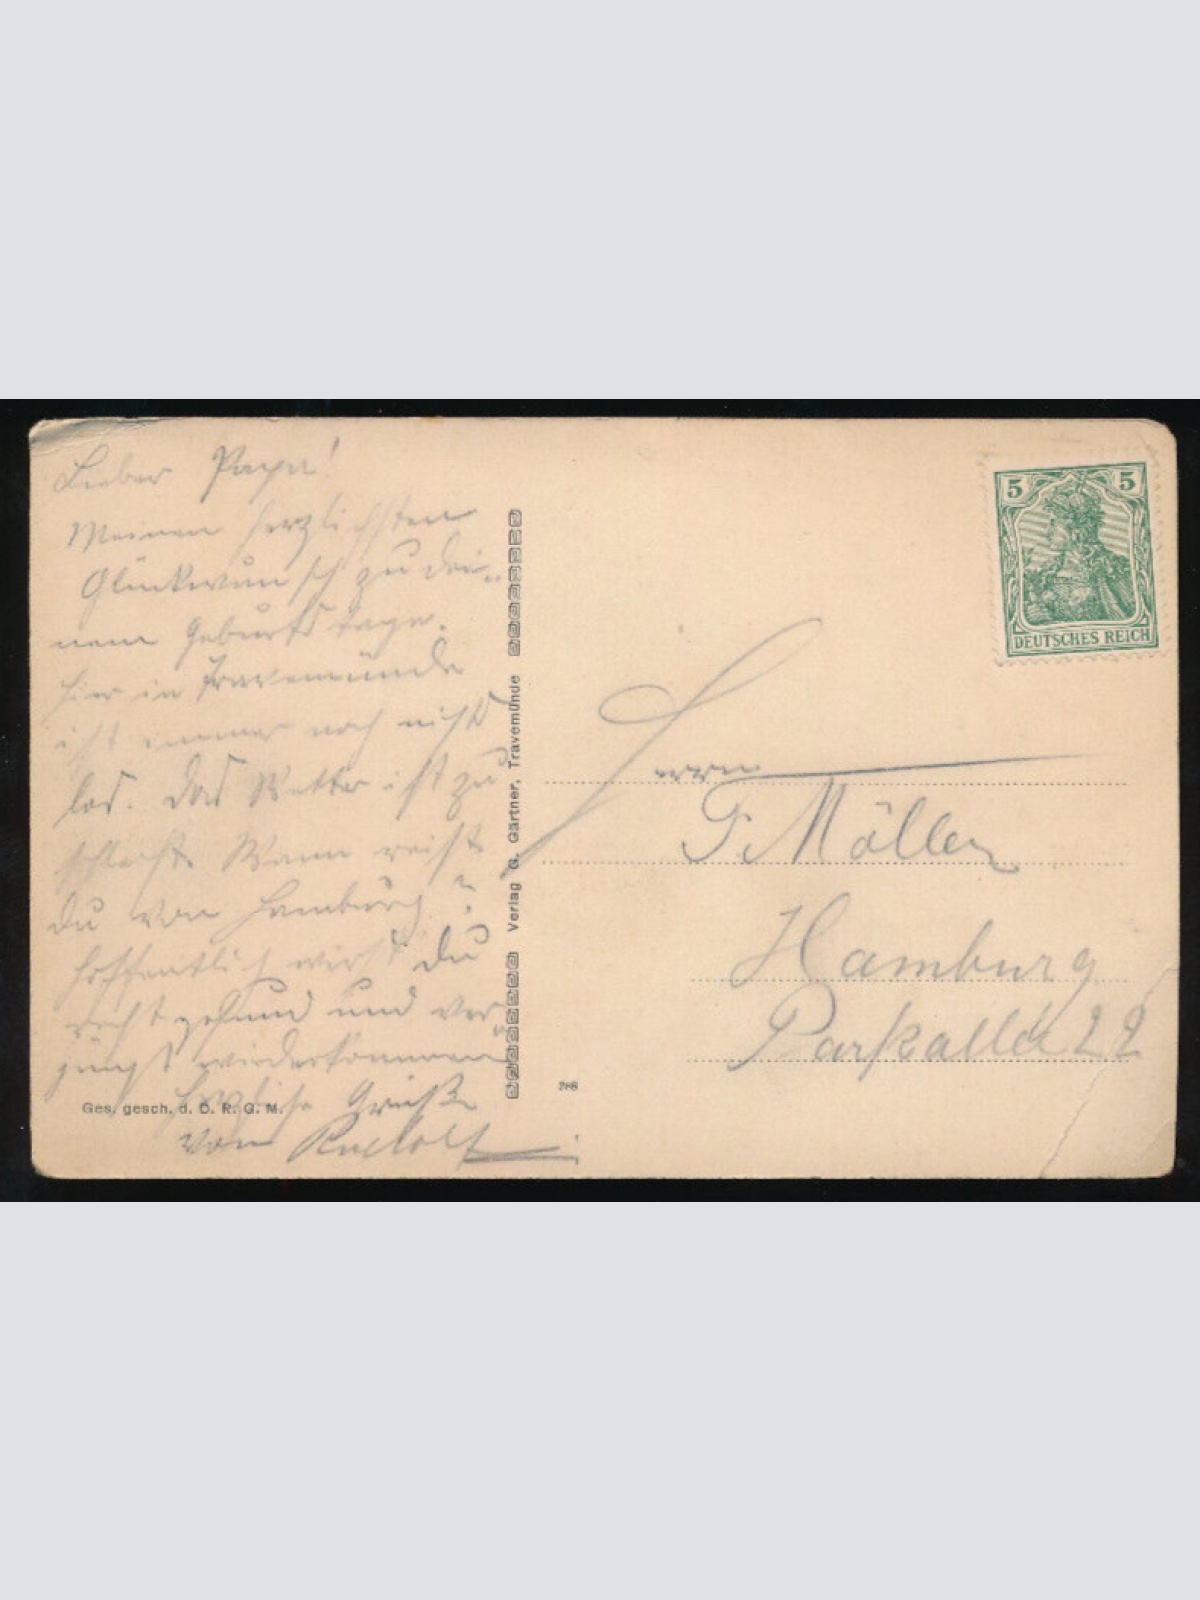 Lieber Papa!
Meinen herzlichsten
Glückwunsch zu dei-
nem Geburtstage.
Hier in Travemünde
ist immer noch nichts
los. Das Wetter ist zu
schlecht. Wann reist
Du von Hamburg?
Hoffentlich wirst Du
recht gesund und ver-
jüngt wiederkommen
Herzliche Grüße
von Rudolf.
Ges. gesch. d. D. R. G. M.
Verlag G. Gärtner, Travemünde
286
5 5
DEUTSCHES REICH
Herrn
F. Möller
Hamburg
Parkallee 22